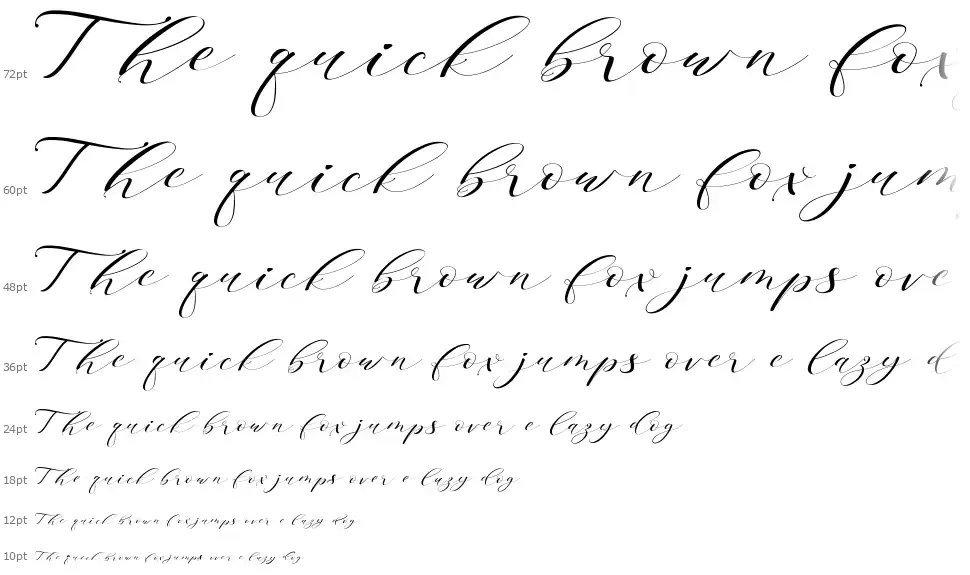 72pt The quick brown fox
60pt The quick brown fox jum
48pt The quick brown fox jumps ove
36pt The quick brown fox jumps over e lazy d
24pt The quick brown fox jumps over e lazy dog
18pt The quick brown fox jumps over e lazy dog
12pt The quick brown fox jumps over e lazy dog
10pt The quick brown fox jumps over e lazy dog